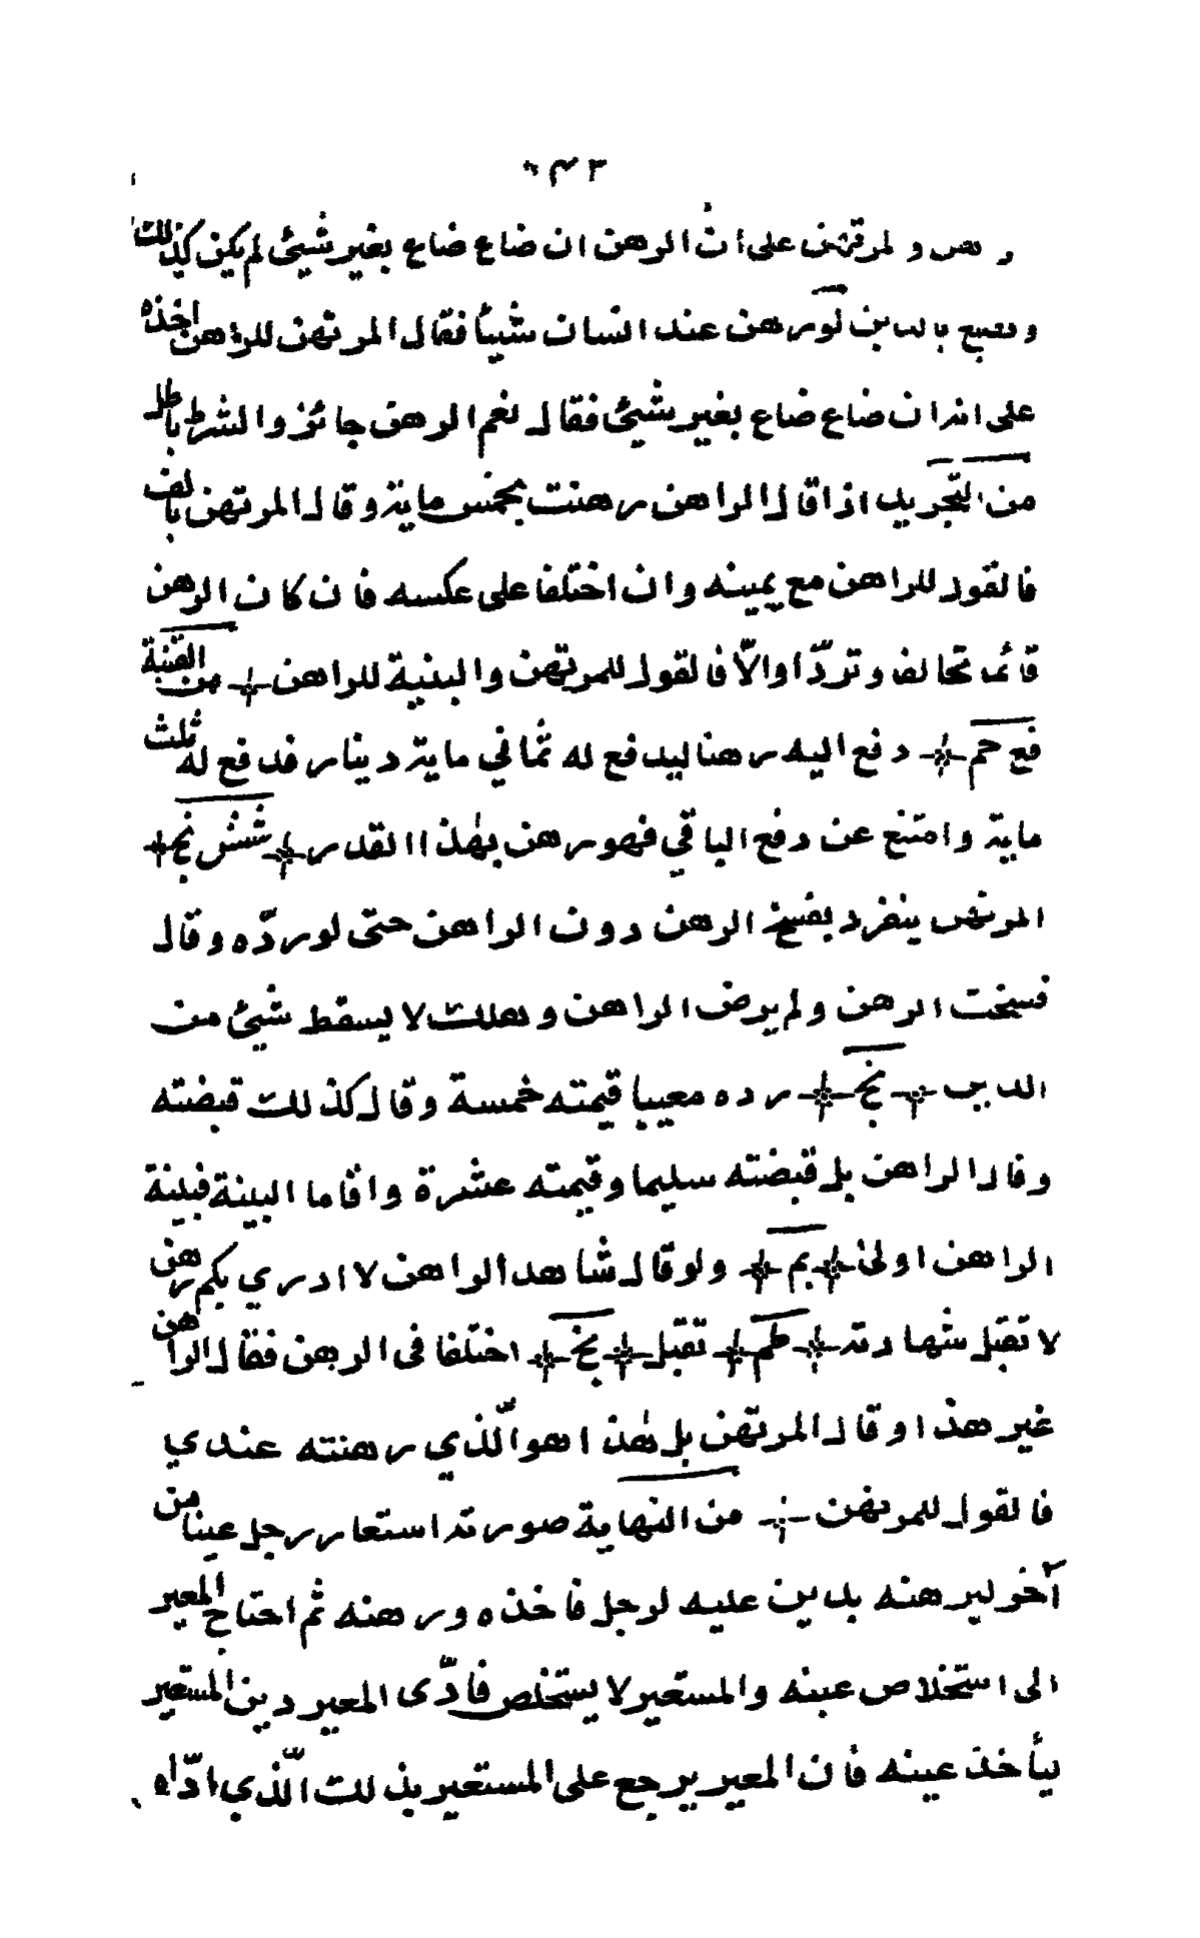 والمرتهن على ان الرهن ان ضاع ضاع بغير شيئ لم يكن كذلك
بالدين لو رهن عند انسان شيئا فقال المرتهن للراهن اخذه
على انه ان ضاع ضاع بغير شيئ فقال نعم الرهن جائز والشرط باطل
من التجريد اذا قال الراهن رهنت بخمس ماية وقال المرتهن بالف
فالقول للراهن مع يمينه وان اختلفا على عكسه فان كان الرهن
قائما تحالفا وتردّا والّا فالقول للمرتهن والبنية للراهن من القنية
فع حم دفع اليه رهنا ليدفع له ثماني ماية دينار فدفع له ثلث
ماية وامتنع عن دفع الباقي فهو رهن بهذا القدر شش نج
المرتهن ينفرد بفسخ الرهن دون الراهن حتى لو ردّه وقال
فسخت الرهن ولم يرض الراهن وهلك لا يسقط شيئ من
الدين نج رده معيبا قيمته خمسة وقال كذلك قبضته
وقال الراهن بل قبضته سليما وقيمته عشرة واقاما البينة فبينة
الراهن اولى بم ولو قال شاهد الراهن لا ادري بكم رهن
لا تقبل شهادته طم تقبل بخ اختلفا في الرهن فقال الراهن
غير هذا وقال المرتهن بل هذا هو الّذي رهنته عندي
فالقول للمرتهن من النهاية صورته استعار رجل عينا من
آخر ليرهنه بدين عليه لرجل فاخذه ورهنه ثم احتاج المعير
الى استخلاص عينه والمستعير لا يستخلص فادّى المعير دين المستعير
ليأخذ عينه فان المعير يرجع على المستعير بذلك الّذي ادّاه